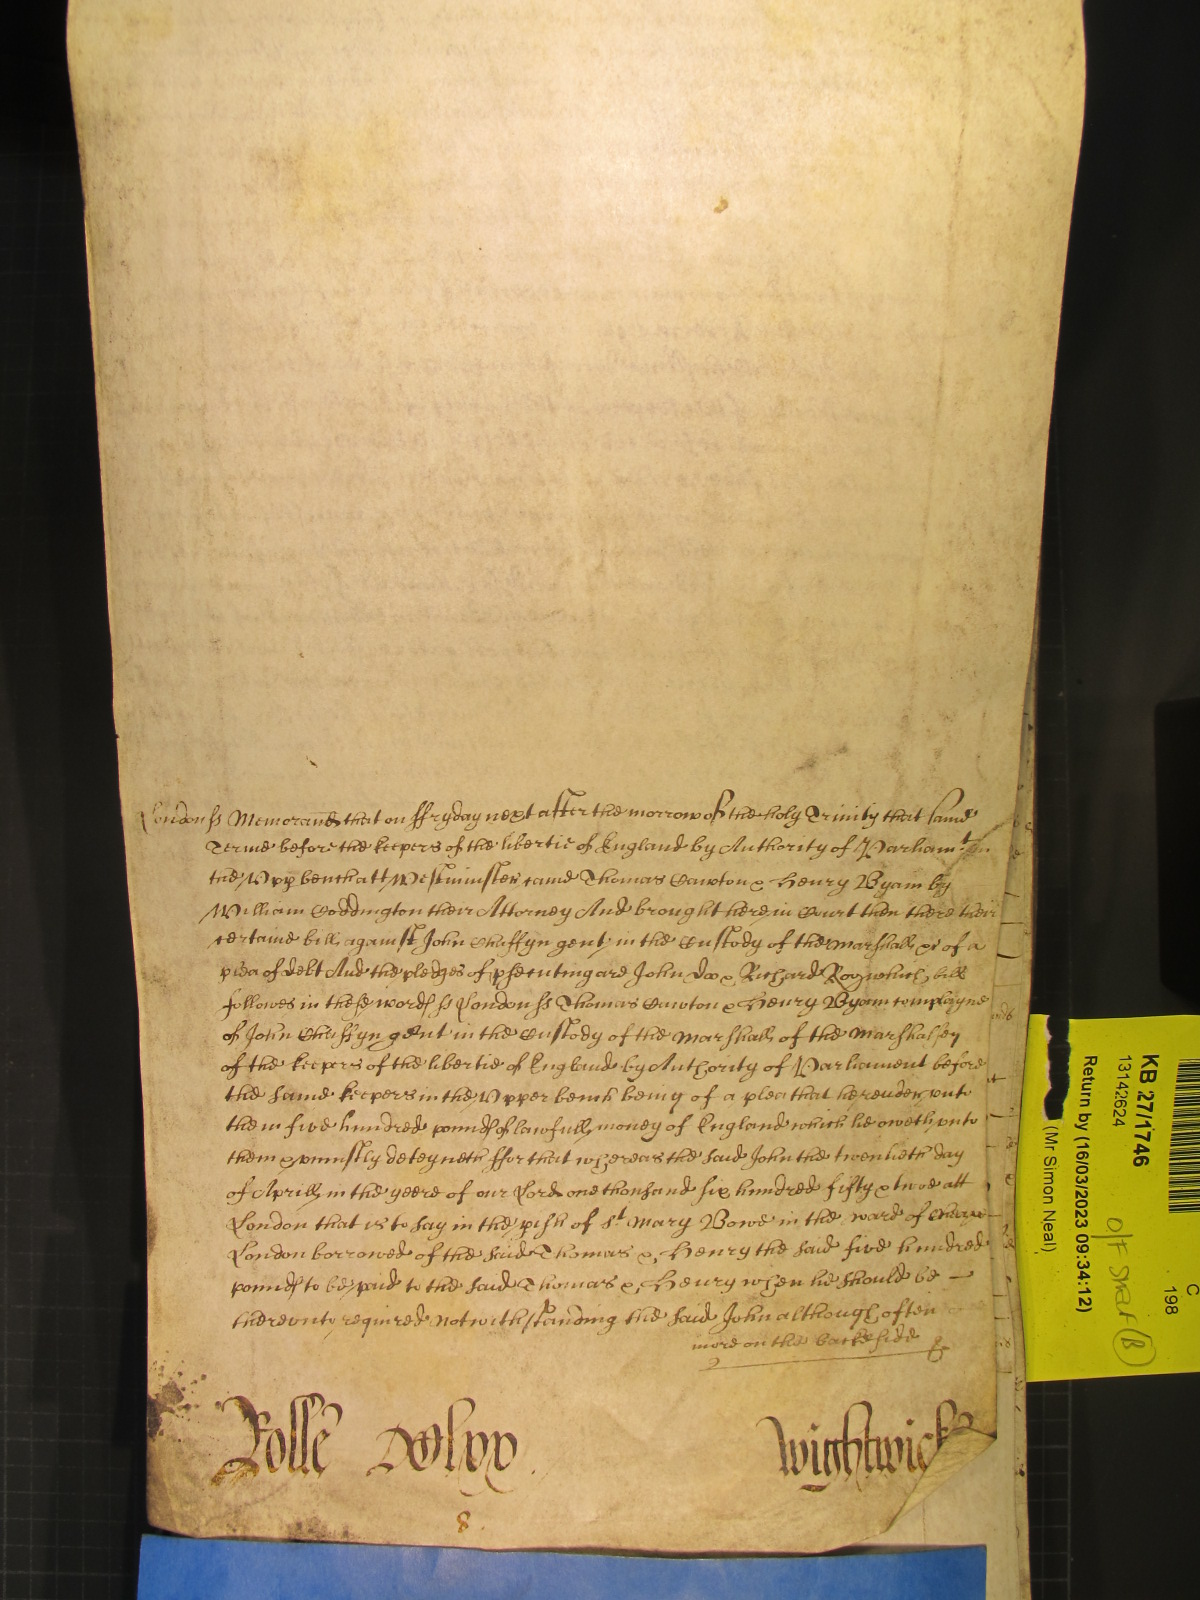 London ss Memorand that on ffryday next after the morrow of the holy Trinity that same
Terme before the keepers of the libertie of England by Authority of Parliamt in
the Upp bench att Westminster came Thomas Cawton & Henry Byam by
William Coddington their Attorney And brought here in Court then there their
certaine bill against John Chiffyn gent in the Custody of the marshall &c of a
plea of debt And the pledges of psecuting are John Doo & Richard Roo which bill
followes in these words ss London ss Thomas Cawton & Henry Byam complayne
of John Chiffyn gent in the Custody of the Marshall of the Marshalsey
of the keepers of the libertie of England by Authority of Parliament before
the same keepers in the Upper bench being of a plea that he render unto
them five hundred pounds of lawfull money of England which he oweth unto
them & uniustly deteyneth ffor that whereas the said John the twentieth day
of Aprill in the yeere of our Lord one thousand six hundred fifty & two att
London that is to say in the pish of St Mary Bowe in the ward of Cheape
London borrowed of the said Thomas & Henry the said five hundred
pounds to be paid to the said Thomas & Henry when he should be
thereunto required notwithstanding the said John although often
more on the backe side
Rolle
Wightwick
8
KB 27/1746
13142624
C
198
O/F Sheet (B)
Return by (16/03/2023 09:34:12)
(Mr Simon Neal)